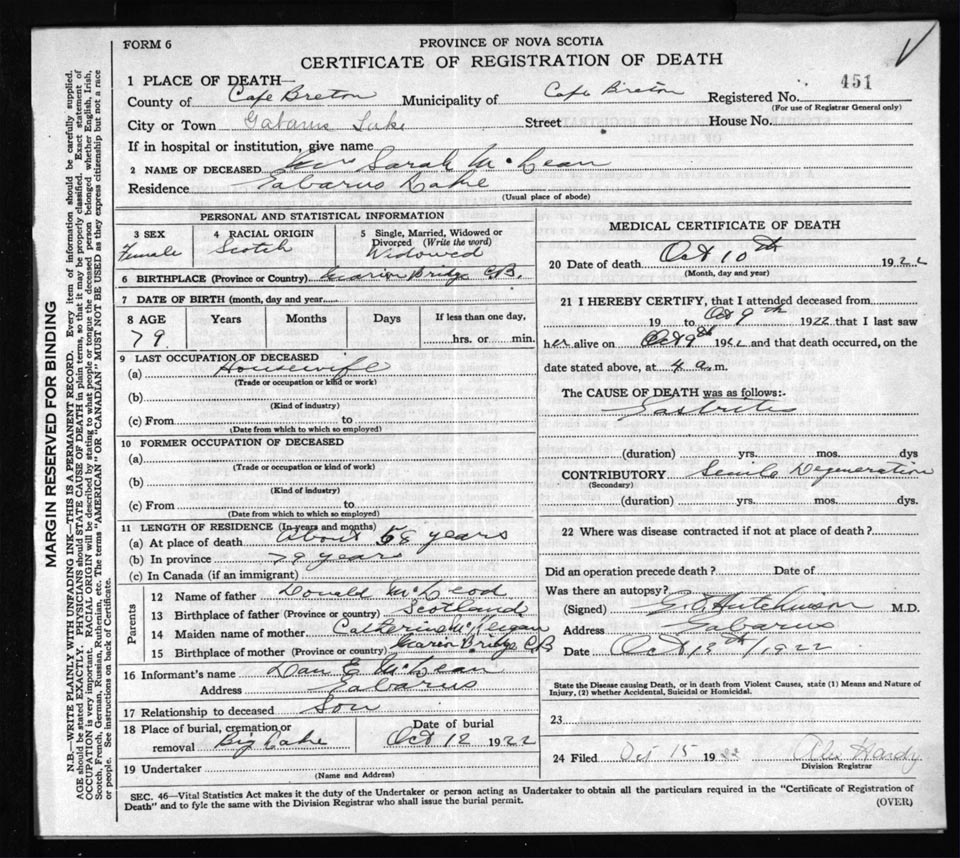 FORM 6
PROVINCE OF NOVA SCOTIA
CERTIFICATE OF REGISTRATION OF DEATH
1 PLACE OF DEATH—
451
County of Cape Breton Municipality of Cape Breton Registered No.
(For use of Registrar General only)
City or Town Gabarus Lake Street House No.
If in hospital or institution, give name
2 NAME OF DECEASED Mrs Sarah McLean
Residence Gabarus Lake
(Usual place of abode)
PERSONAL AND STATISTICAL INFORMATION
3 SEX 4 RACIAL ORIGIN 5 Single, Married, Widowed or Divorced (Write the word)
Female Scotch Widowed
6 BIRTHPLACE (Province or Country) Marion Bridge C.B.
7 DATE OF BIRTH (month, day and year)
8 AGE Years Months Days If less than one day,
79 hrs. or min.
9 LAST OCCUPATION OF DECEASED
(a) Housewife
(Trade or occupation or kind or work)
(b)
(Kind of industry)
(c) From to
(Date from which to which so employed)
10 FORMER OCCUPATION OF DECEASED
(a)
(Trade or occupation or kind of work)
(b)
(Kind of industry)
(c) From to
(Date from which to which so employed)
11 LENGTH OF RESIDENCE (In years and months)
(a) At place of death About years
(b) In province 79 years
(c) In Canada (if an immigrant)
Parents
12 Name of father Donald McLeod
13 Birthplace of father (Province or country) Scotland
14 Maiden name of mother Catherine
15 Birthplace of mother (Province or country) Marion Bridge CB
16 Informant's name Dan E McLean
Address Gabarus
17 Relationship to deceased Son
18 Place of burial, cremation or removal Big Lake
Date of burial Oct 12 1922
19 Undertaker
(Name and Address)
MEDICAL CERTIFICATE OF DEATH
20 Date of death Oct 10th 1922
(Month, day and year)
21 I HEREBY CERTIFY, that I attended deceased from
19 to Oct 9th 1922 that I last saw
her alive on Oct 9th 1922 and that death occurred, on the
date stated above, at 4 a.m.
The CAUSE OF DEATH was as follows:-
Gastritis
(duration) yrs. mos. dys
CONTRIBUTORY Senile Degeneration
(Secondary)
(duration) yrs. mos. dys.
22 Where was disease contracted if not at place of death?
Did an operation precede death? Date of
Was there an autopsy?
(Signed) Hutchinson M.D.
Address Gabarus
Date Oct 1922
State the Disease causing Death, or in death from Violent Causes, state (1) Means and Nature of
Injury, (2) whether Accidental, Suicidal or Homicidal.
23
24 Filed Oct 15 1922 Hardy
Division Registrar
SEC. 46—Vital Statistics Act makes it the duty of the Undertaker or person acting as Undertaker to obtain all the particulars required in the "Certificate of Registration of
Death" and to fyle the same with the Division Registrar who shall issue the burial permit.
(OVER)
MARGIN RESERVED FOR BINDING
N.B.—WRITE PLAINLY WITH UNFADING INK—THIS IS A PERMANENT RECORD. Every item of information should be carefully supplied.
AGE should be stated EXACTLY. PHYSICIANS should STATE CAUSE OF DEATH in plain terms, so that it may be properly classified. Exact statement of
OCCUPATION is very important. RACIAL ORIGIN will be described by stating to what people or tongue the deceased person belonged whether English, Irish,
Scotch, French, German, Russian, Ruthenian, etc. The terms "AMERICAN" OR "CANADIAN" MUST NOT BE USED as they express citizenship but not a race
or people. See instructions on back of Certificate.